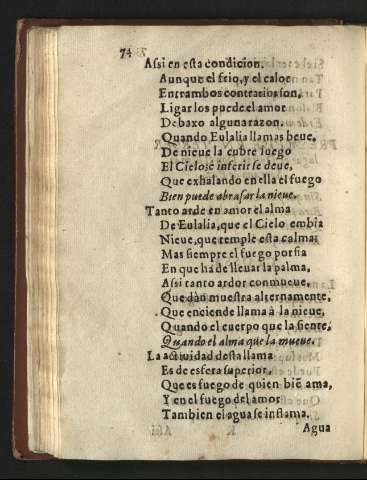 74
Assi en esta condicion.
Aunque el frio, y el calor
Entrambos contrarios son,
Ligarlos puede el amor
Debaxo alguna razon.
Quando Eulalia llamas beue,
De nieue la cubre luego
El Cielo: è inferir se deue,
Que exhalando en ella el fuego
Bien puede abrasar la nieue.
Tanto arde en amor el alma
De Eulalia, que el Cielo embia
Nieue, que temple esta calma;
Mas siempre el fuego porfia
En que hà de lleuar la palma,
Assi tanto ardor conmueue,
Que dàn muestra alternamente,
Que enciende llama à la nieue,
Quando el cuerpo que la siente,
Quando el alma que la mueue.
La actiuidad desta llama
Es de esfera superior,
Que es fuego de quien biẽ ama,
Y en el fuego del amor
Tambien el agua se inflama.
Agua